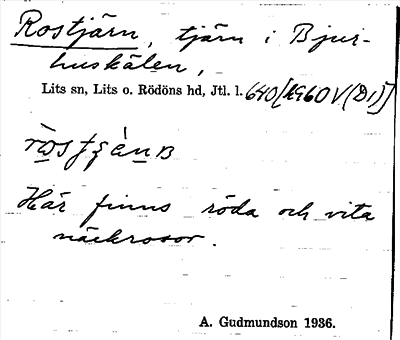 Rostjärn, tjärn i Bjur-
huskälen,
Lits sn, Lits o. Rödöns hd, Jtl. l.
Här finns röda och vita
näckrosor.
A. Gudmundson 1936.